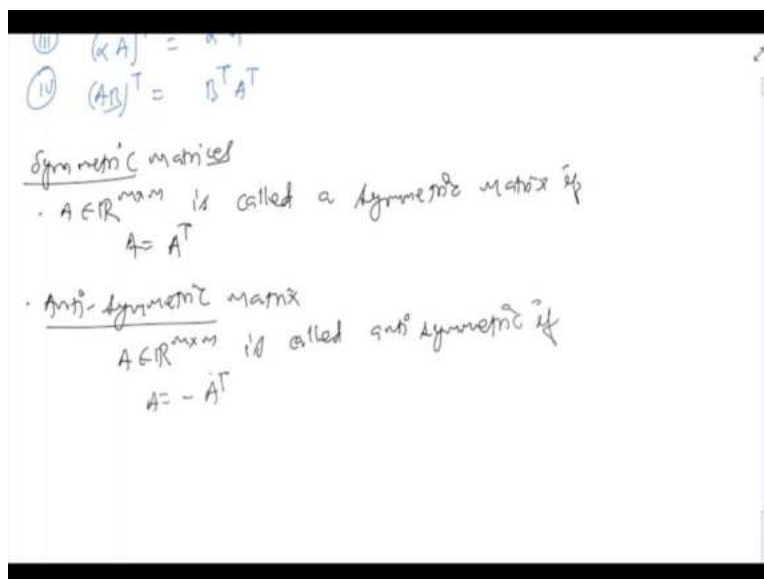 (iii) (αA)ᵀ = αAᵀ
(iv) (AB)ᵀ = Bᵀ Aᵀ
Symmetric matrices
· A ∈ ℝᵐˣᵐ is called a symmetric matrix if
A = Aᵀ
· Anti-symmetric matrix
A ∈ ℝᵐˣᵐ is called anti symmetric if
A = - Aᵀ